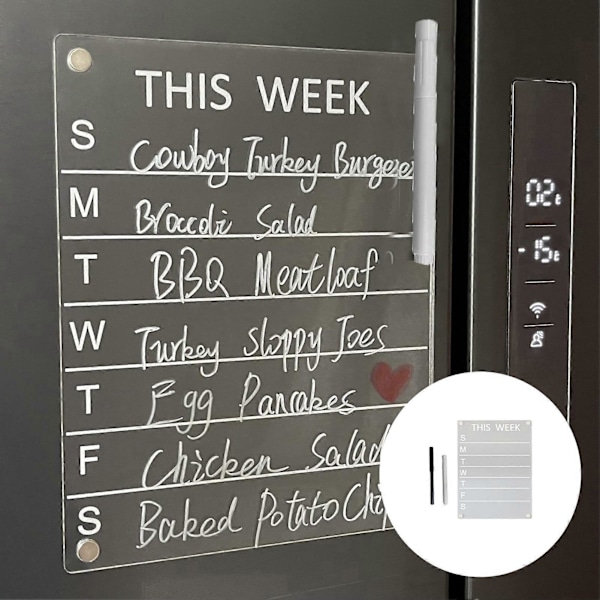 THIS WEEK
S Cowboy Turkey Burgerer
M Broccoli Salad
T BBQ Meatloaf
W Turkey Sloppy Joes
T Egg Pancakes
F Chicken Salad
S Baked Potato Chip
02
-15
THIS WEEK
S
M
T
W
T
F
S